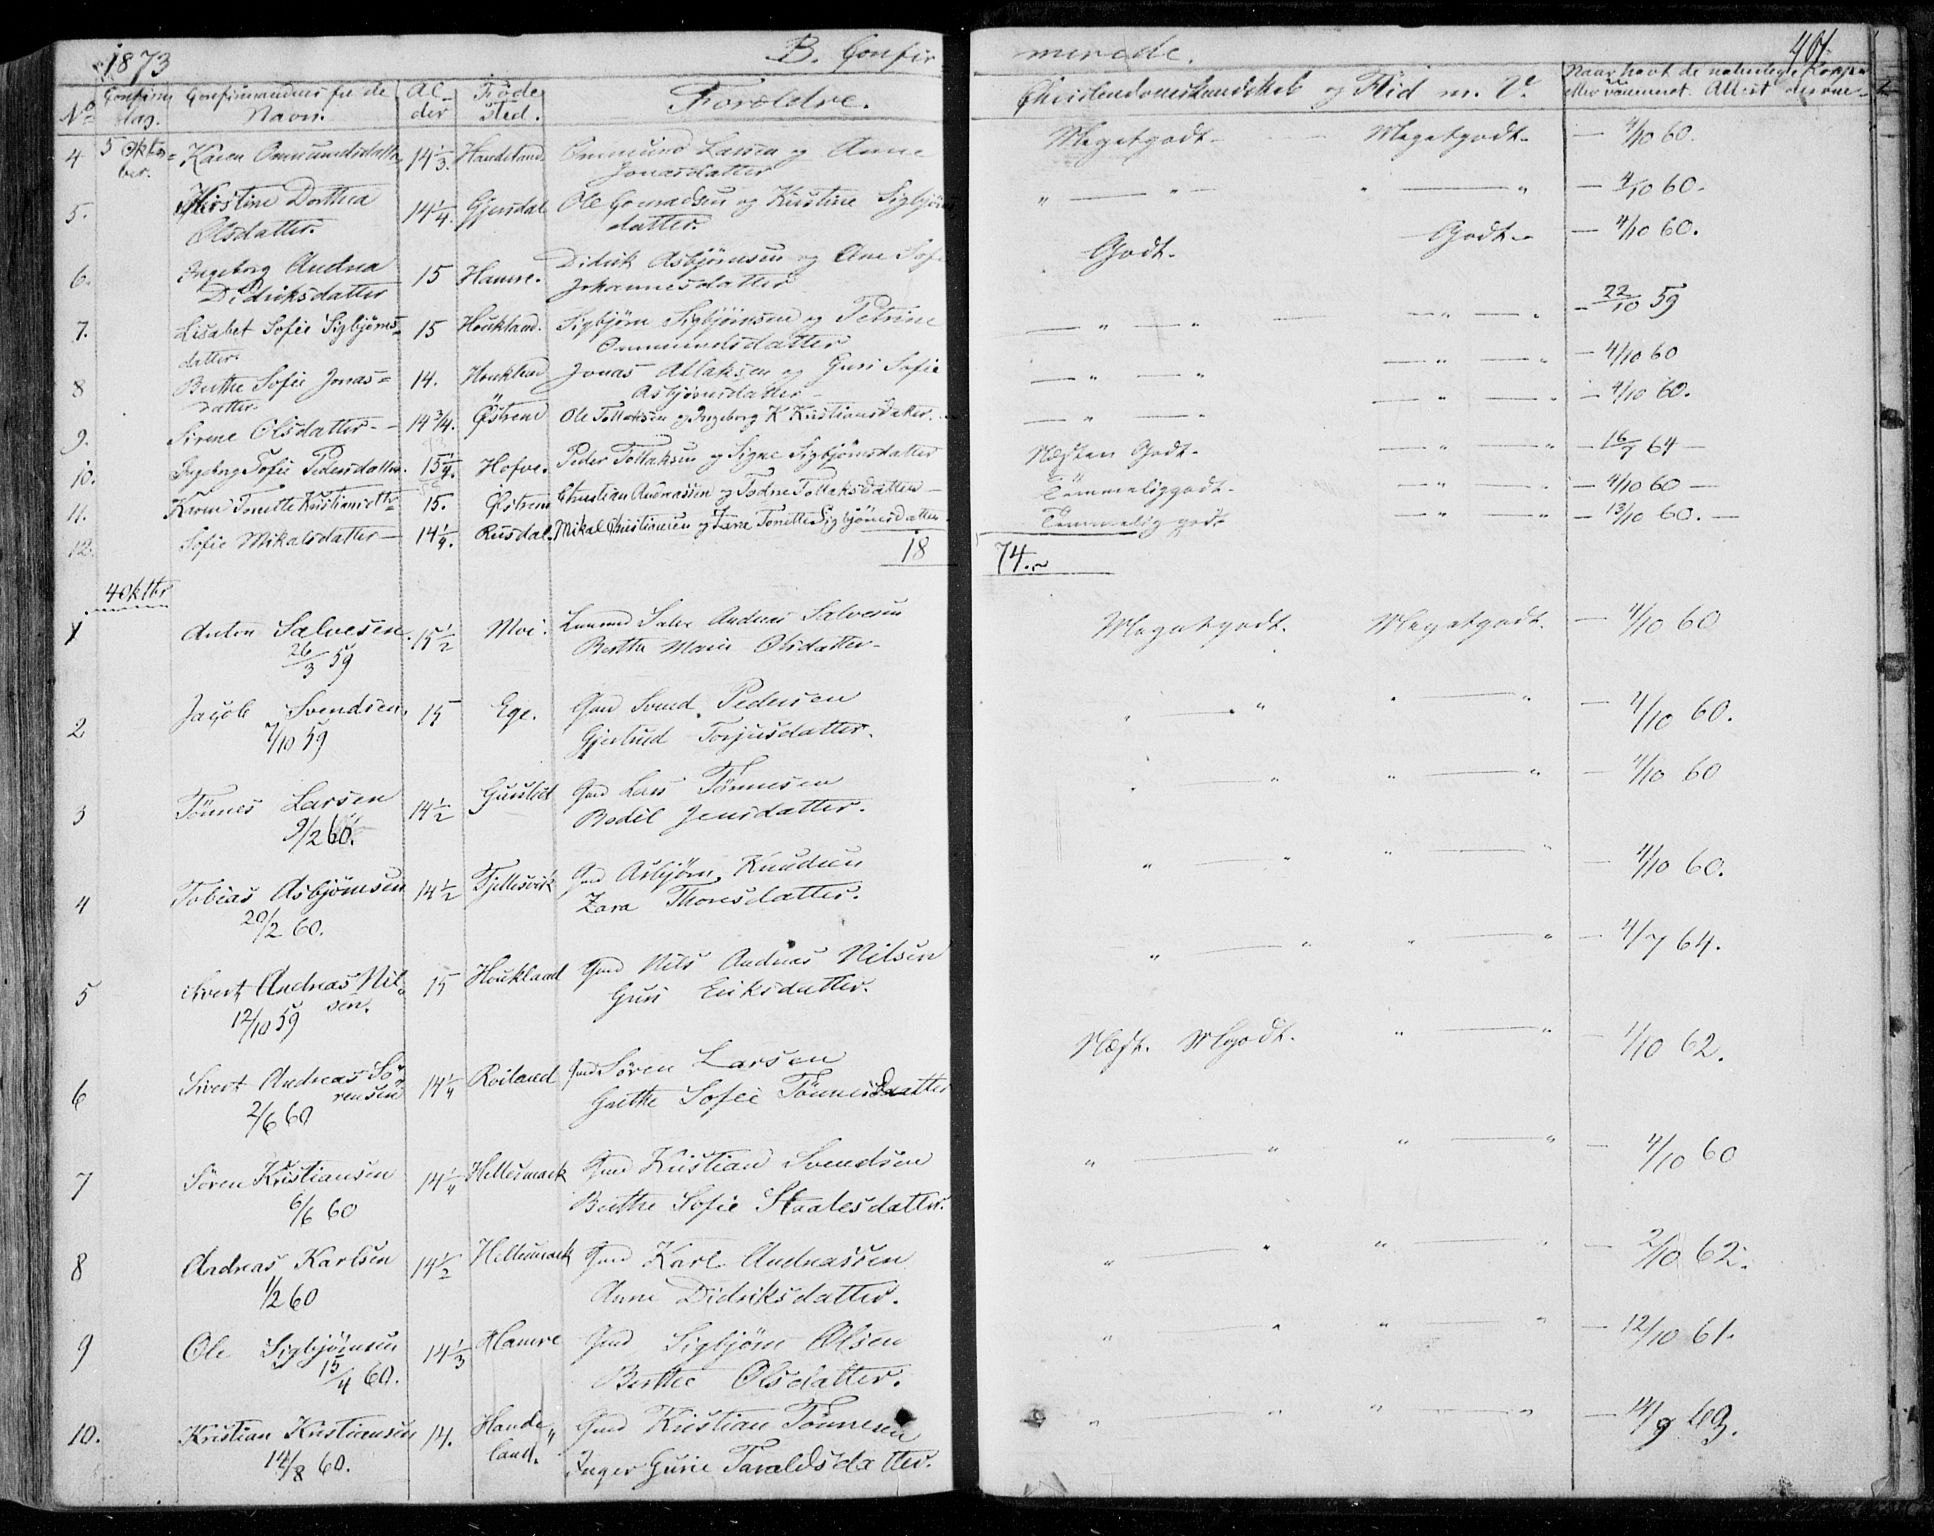 1873 B. Confirmerede. 401.
No Confirm. dag. Confirmandens fulde Navn. Alder Födested. Forældre. Christendomskundskab og Flid m. V. Naar havt de naturlige Kopper eller vaccineret. Attest derom
4 5 Oktober. Karen Ommundsdatter 14 1/3. Handeland Ommund Larsen og Anne Jonasdatter Megetgodt - Megetgodt - — 4/10 60.
5. Kirstine Dorthea Olsdatter. 14 1/4. Gjersdal Ole Gunnadsen og Kirstine Sigbjörnsdatter. " — " — " — " — 4/10 60.
6. Ingeborg Andrea Didriksdatter 15 Hamre. Didrik Asbjörnsen og Ane Sofie Johannesdatter Godt. Godt - — 4/10 60.
7. Lisabet Sofie Sigbjörnsdatter. 15 Houkland. Sigbjörn Sigbjörnsen og Petrine Ommundsdatter — " — " — " — " — 22/10 59
8 Berthe Sofie Jonasdatter. 14. Houkland Jonas Atlaksen og Guri Sofie Asbjörnsdatter — " — " — " — " — 4/10 60
9. Sirene Olsdatter - - 14 3/4. Östrem Ole Tollaksen og Ingeborg K Kristiansdatter. — " — " — " — " — 4/10 60.
10. Ingeborg Sofie Pedersdatter. 15 1/4. Hofve. Peder Tollaksen og Signe Sigbjörnsdatter Næsten Godt. — " — " — 16/7 64 —
11. Karen Tonette Kristiansdtr 15. Östrem Christian Andreassen og Todne Tollaksdatter — Temmeliggodt. — " — " — 4/10 60 —
12. Sofie Mikalsdatter — 14 1/4. Rusdal. Mikal Christiansen og Lene Tonette Sigbjörnsdatter Temmelig godt — " — " — 13/10 60. —
18 74.
4 Oktbr
1 Anton Salvesen. 26/3 59 15 1/2 Moi. Andreas Salvesen Berthe Marie Olsdatter - Megetgodt. Megetgodt. — 4/10 60
2 Jacob Svendsen. 7/10 59 15 Ege. Gmd Svend Pedersen Gjertrud Torjusdatter. " — " " — " — 4/10 60.
3 Tönnes Larsen 9/2 60. 14 1/2 Gmd Lars Tönnesen Bodil Jensdatter. " — " " — " — 4/10 60
4 Tobias Asbjörnsen 20/2 60. 14 1/2 Fjellesvik Gmd Asbjörn Knudsen Zara Thoresdatter. " — " " — " — 4/10 60.
5 Sivert Andreas Nilsen. 12/10 59 15 Houkland Gmd Nils Andreas Nilsen Guri Eriksdatter. " — " " — " — 4/7 64.
6 Sivert Andreas Sörensen 2/6 60 14 1/4 Roiland Gmd Sören Larsen Grethe Sofie Tönnesdatter Næst. MGodt. " — " — 1/10 62.
7 Sören Kristiansen 6/6 60 14 1/4 Hellesmark Gmd Kristian Svendsen Berthe Sofie Staalesdatter. " — " " — " — 4/10 60
8 Andreas Karlsen 1/2 60 14 1/2 Hellesmark Gmd Karl Andreassen Anne Didriksdatter. " — " " — " — 2/10 62.
9 Ole Sigbjörnsen 15/4 60. 14 1/3 Hamre Gmd Sigbjörn Olsen Berthe Olsdatter. " — " " — " — 12/10 61.
10. Kristian Kristiansen 14/8 60. 14. Handeland. Gmd Kristian Tönnesen Inger Gurie Taraldsdatter. " — " " — " — 14/9 69.